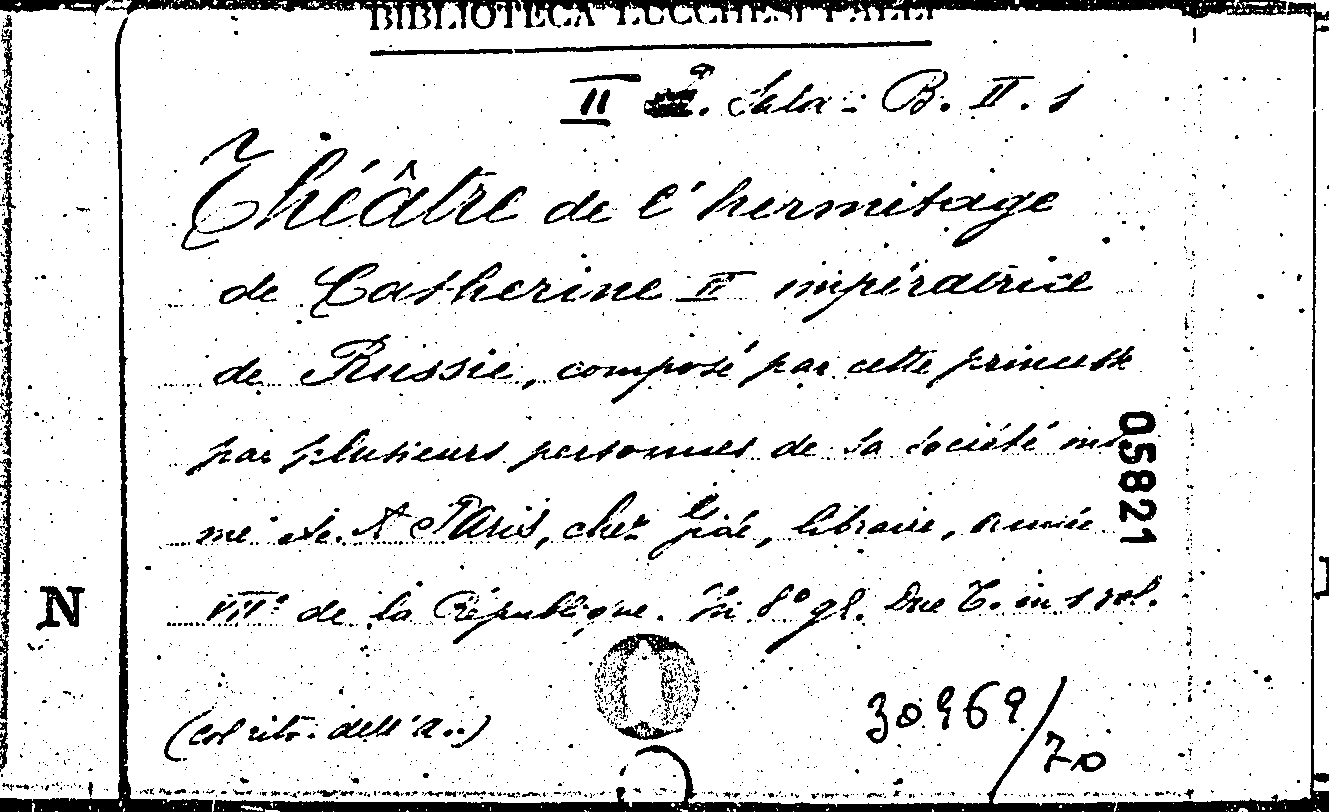 BIBLIOTECA LUCCHESI PALLI
II a. Sala: B. II. 1
Théâtre de l'hermitage
de Catherine II impératrice
de Russie, composé par cette princesse
par plusieurs personnes de sa société inti
me etc. A Paris, chez Gide, libraire, année
VIIe de la République. In 8° gr. Due T. in 1 vol.
(col rito. dell'a..)
30969/70
05821
N